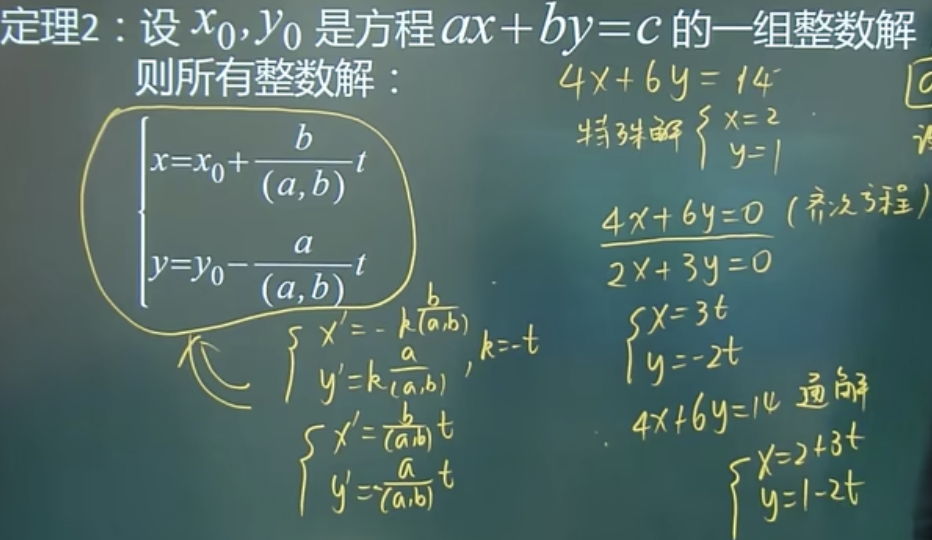 定理2：设 x₀,y₀ 是方程 ax+by=c 的一组整数解
则所有整数解：
x=x₀+\frac{b}{(a,b)}t
y=y₀-\frac{a}{(a,b)}t
x'=-k\frac{b}{(a,b)}
y'=k\frac{a}{(a,b)}, k=-t
x'=\frac{b}{(a,b)}t
y'=-\frac{a}{(a,b)}t
4x+6y=14
特殊解 { x=2
y=1
4x+6y=0 (齐次方程)
2x+3y=0
x=3t
y=-2t
4x+6y=14 通解
x=2+3t
y=1-2t